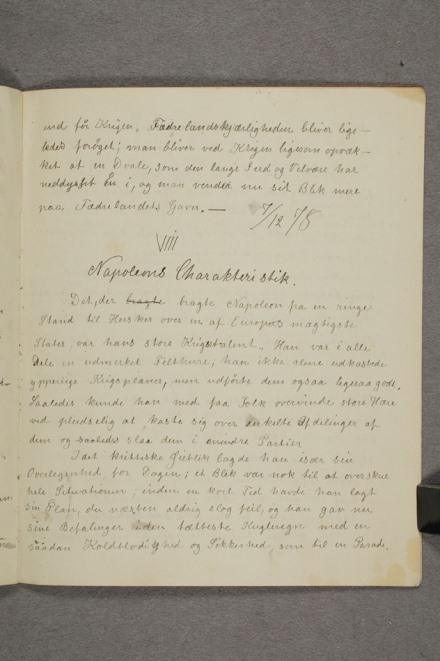 end før Krigen. Fædrelandskjærligheden bliver lige-
ledes forøget; man bliver ved Krigen ligesom opvæk-
ket at en Dvale, som den lange Fred og Velvære har
neddysset En i, og man vender nu sit Blik mere
paa Fædrelandets Gavn. —
7/12 78
VIII
Napoleons Charakteristik.
Det, der bragte bragte Napoleon fra en ringe
Stand til Hersker over en af Europas mægtigste
Stater, var hans store Krigstalent. Han var i alle
Dele en udmerket Feltherre; han ikke alene udkastede
ypperlige Krigsplaner, men udførte dem ogsaa ligesaa godt.
Saaledes kunde han med faa Folk overvinde store Hære
ved pludselig at kaste sig over enkelte Afdelinger af
dem og saaledes slaa dem i mindre Partier
I det kritiske Øieblik lagde han især sin
Overlegenhed for Dagen; et Blik var nok til at overskue
hele Situationen; inden en kort Tid havde han lagt
sin Plan, der næsten aldrig slog feil, og han gav nu
sine Befalinger inden tætteste Kugleregn med en
saadan Koldblodighed og Sikkerhed, som til en Parade.